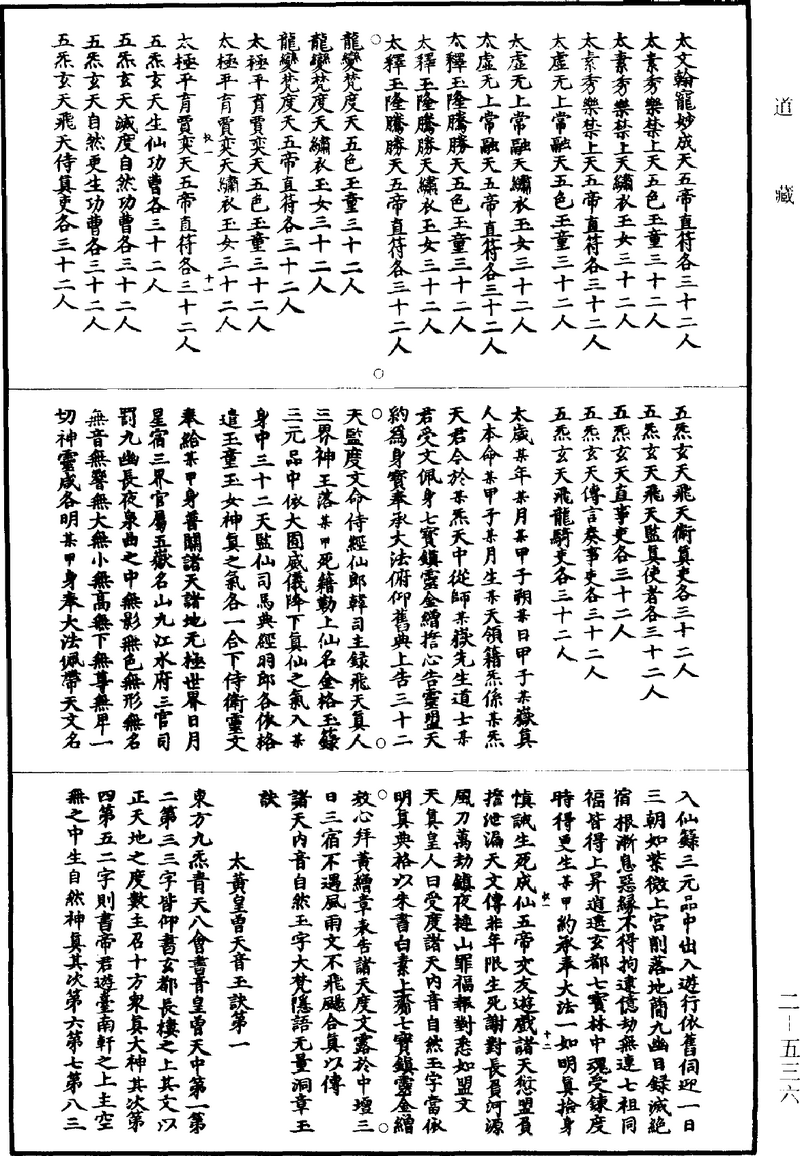 道藏
太文翰寵妙成天五帝直符各三十二人
太素秀樂禁上天五色玉童三十二人
太素秀樂禁上天繡衣玉女三十二人
太素秀樂禁上天五帝直符各三十二人
太虛无上常融天五色玉童三十二人
太虛无上常融天繡衣玉女三十二人
太虛无上常融天五帝直符各三十二人
太釋玉隆騰勝天五色玉童三十二人
太釋玉隆騰勝天繡衣玉女三十二人
太釋玉隆騰勝天五帝直符各三十二人
龍變梵度天五色玉童三十二人
龍變梵度天繡衣玉女三十二人
龍變梵度天五帝直符各三十二人
太極平育賈奕天五色玉童三十二人
太極平育賈奕天繡衣玉女三十二人
太極平育賈奕天五帝直符各三十二人
五炁玄天生仙功曹各三十二人
五炁玄天滅度自然功曹各三十二人
五炁玄天自然更生功曹各三十二人
五炁玄天飛天侍真吏各三十二人
五炁玄天飛天衛真吏各三十二人
五炁玄天飛天監真使者各三十二人
五炁玄天直事吏各三十二人
五炁玄天傳言奏事吏各三十二人
五炁玄天飛龍騎吏各三十二人
太歲某年某月某甲子朔某日甲子某嶽真
人本命某甲子某月生某天領籍炁係某炁
天君今於某炁天中從師某嶽先生道士某
君受文佩身七寶鎮靈金繒擔心告靈盟天
約為身寶奉承大法俯仰舊典上告三十二
天監度文命侍經仙郎韓司主錄飛天真人
三界神王落某甲死籍勒上仙名金格玉籙
三元品中依大固威儀降下真仙之氣入某
身中三十二天監仙司馬典經明郎各依格
遣玉童玉女神真之氣各一合下侍衛靈文
奉給某甲身普關諸天諸地无極世界日月
星宿三界官屬五嶽名山九江水府三官司
罰九幽長夜泉曲之中無影無色無形無名
無音無響無大無小無高無下無尊無卑一
切神靈咸各明某甲身奉大法佩帶天文名
入仙籙三元品中出入遊行依舊伺迎一日
三朝如紫微上宮削落地簡九幽目錄滅絕
宿根漸息惡緣不得拘違億劫無連七祖同
福皆得上昇逍遙玄都七寶林中魂受鍊度
時得更生某甲約承奉大法一如明真捨身
慎誠生死成仙五帝交友遊戲諸天愆盟負
擔泄漏天文傳非年限生死謝對長負河源
風刀萬劫鎮夜撻山罪福報對悉如盟文
天真皇人曰受度諸天內音自然玉字當依
明真典格以朱書白素上齎七寶鎮靈金繒
救心拜黃繒章表告諸天度文露於中壇三
日三宿不遇風雨文不飛颺合真以傳
諸天內音自然玉字大梵隱語无量洞章玉
訣
太黃皇曾天音玉訣第一
東方九炁青天八會書音皇曾天中第一第
二第三三字皆仰書玄都長樓之上其文以
正天地之度數主召十方東真大神其次第
四第五二字則書帝君遊臺南軒之上主空
無之中生自然神真其次第六第七第八三
二－五三六